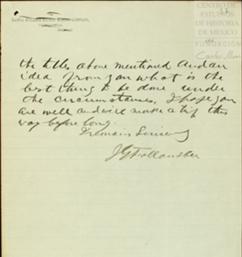 CENTRO DE
ESTUDIOS
DE HISTORIA
DE MEXICO
FUNDACION
Carlos
the title above mentioned And an
idea from you what is the
best thing to be done under
the circumstances, I hope you
are well and will make a trip this
way before long.
I remain Sincerely
J G Follansbee